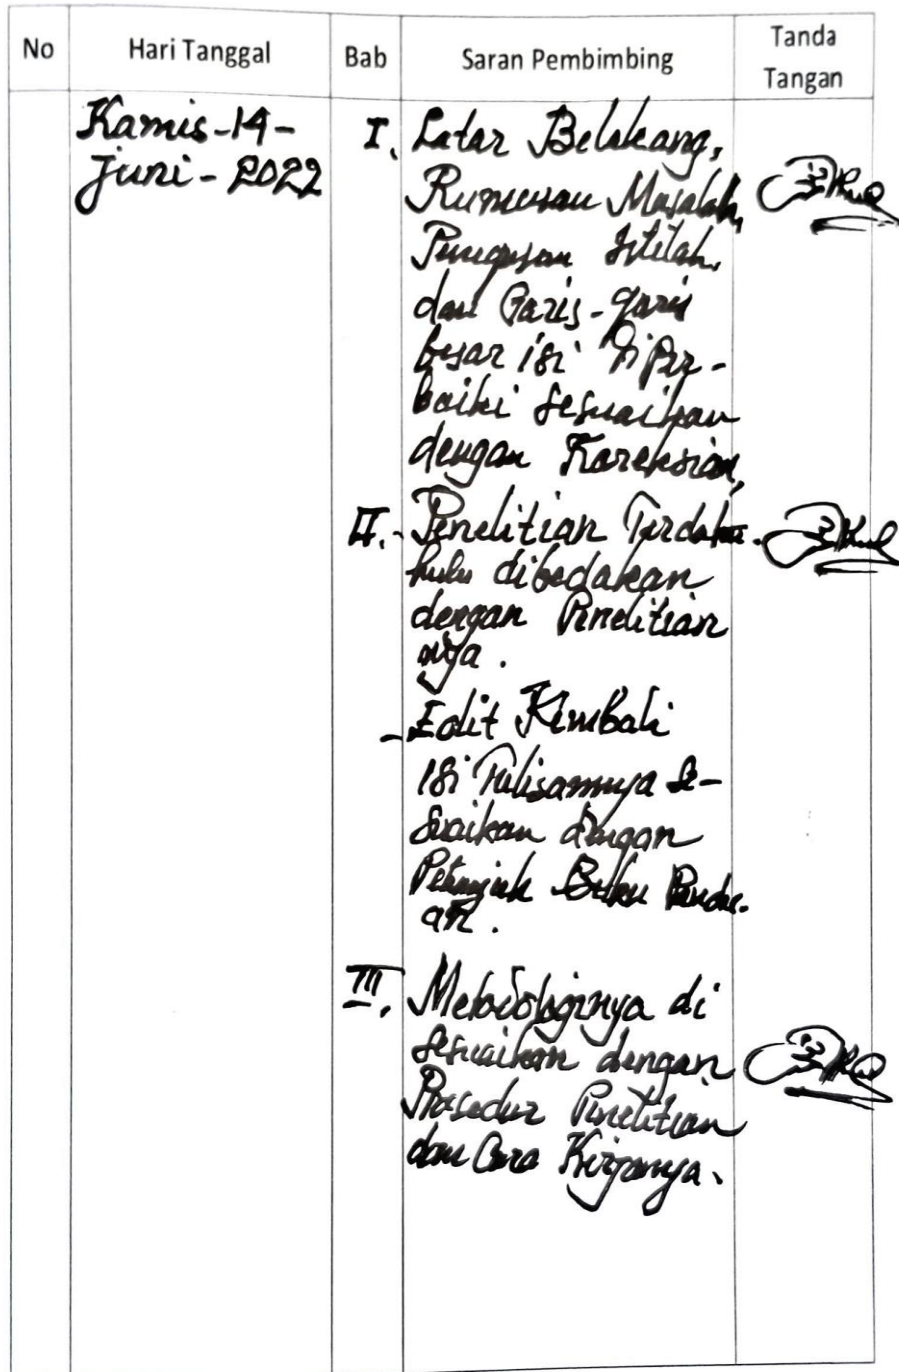 No Hari Tanggal Bab Saran Pembimbing Tanda Tangan
Kamis-14-
Juni-2022
I. Latar Belakang,
Rumusan Masalah,
Penegasan Istilah,
dan Garis-garis
besar isi diper-
baiki sesuaikan
dengan Koreksian,
II. - Penelitian Terdahu-
hulu dibedakan
dengan Penelitian
nya.
- Edit Kembali
isi Tulisannya se-
suaikan dengan
Petunjuk Buku Pandu-
an.
III. Metodologinya di
sesuaikan dengan
Prosedur Penelitian
dan Cara Kerjanya.